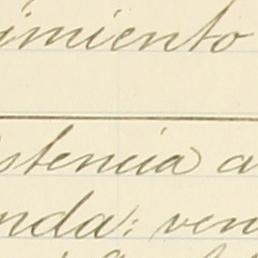 imiento
istencia a
nda: ven